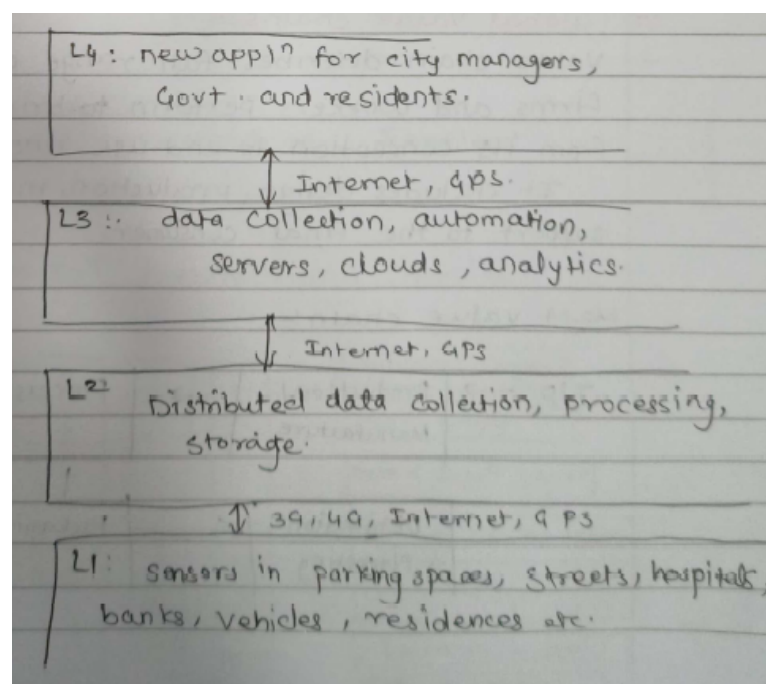 L4: new appln for city managers,
Govt. and residents.
Internet, GPS.
L3: data collection, automation,
servers, clouds, analytics.
Internet, GPS
L2: Distributed data collection, processing,
storage.
3G, 4G, Internet, GPS
L1: sensors in parking spaces, streets, hospitals,
banks, vehicles, residences etc.